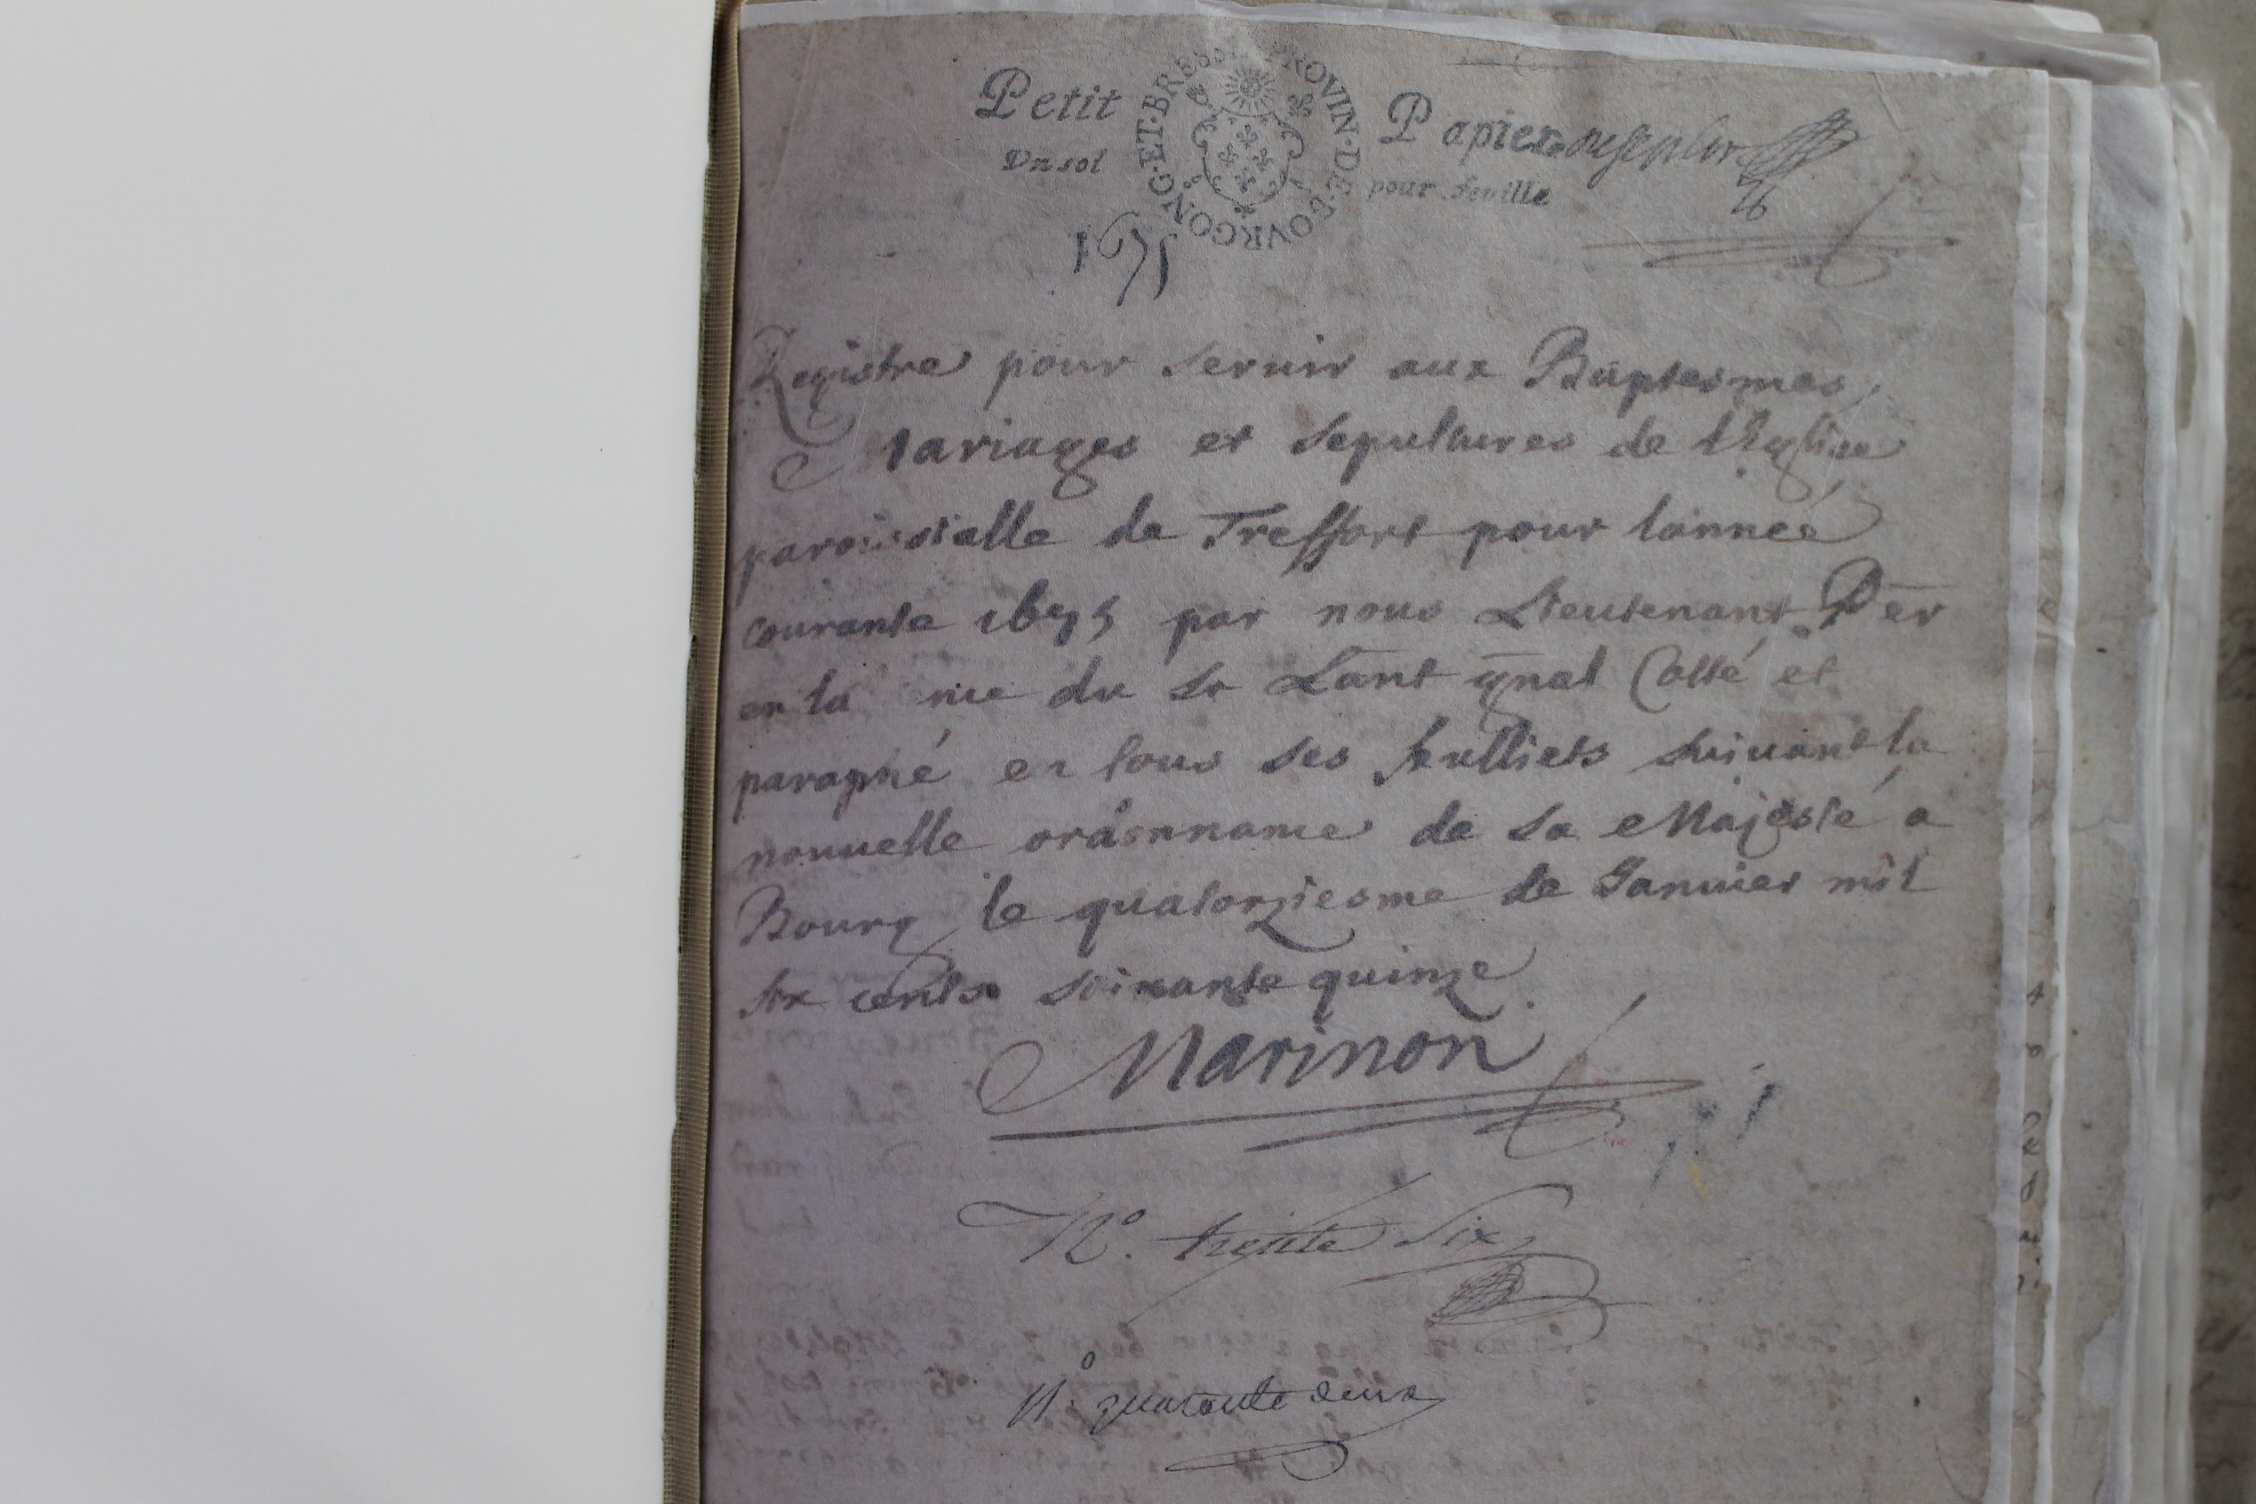 Petit Papier
Vn sol pour feuille
PROVIN·DE·BOVRGONG·ET·BRESSE
1675
Registre pour seruir aux Baptesmes
Mariages et sepultures de l'Eglise
paroissialle de Treffort pour lannee
courante 1675 par nous Lieutenant Per
en la du Sr Lant gnal Cotté et
paraphé en tous ses feulliets suiuant la
nouuelle ordonnance de Sa Majesté a
Bourg le quatorziesme de Januier mil
six cents soixante quinze
Marinon
No. trente Six
No. quarante deux